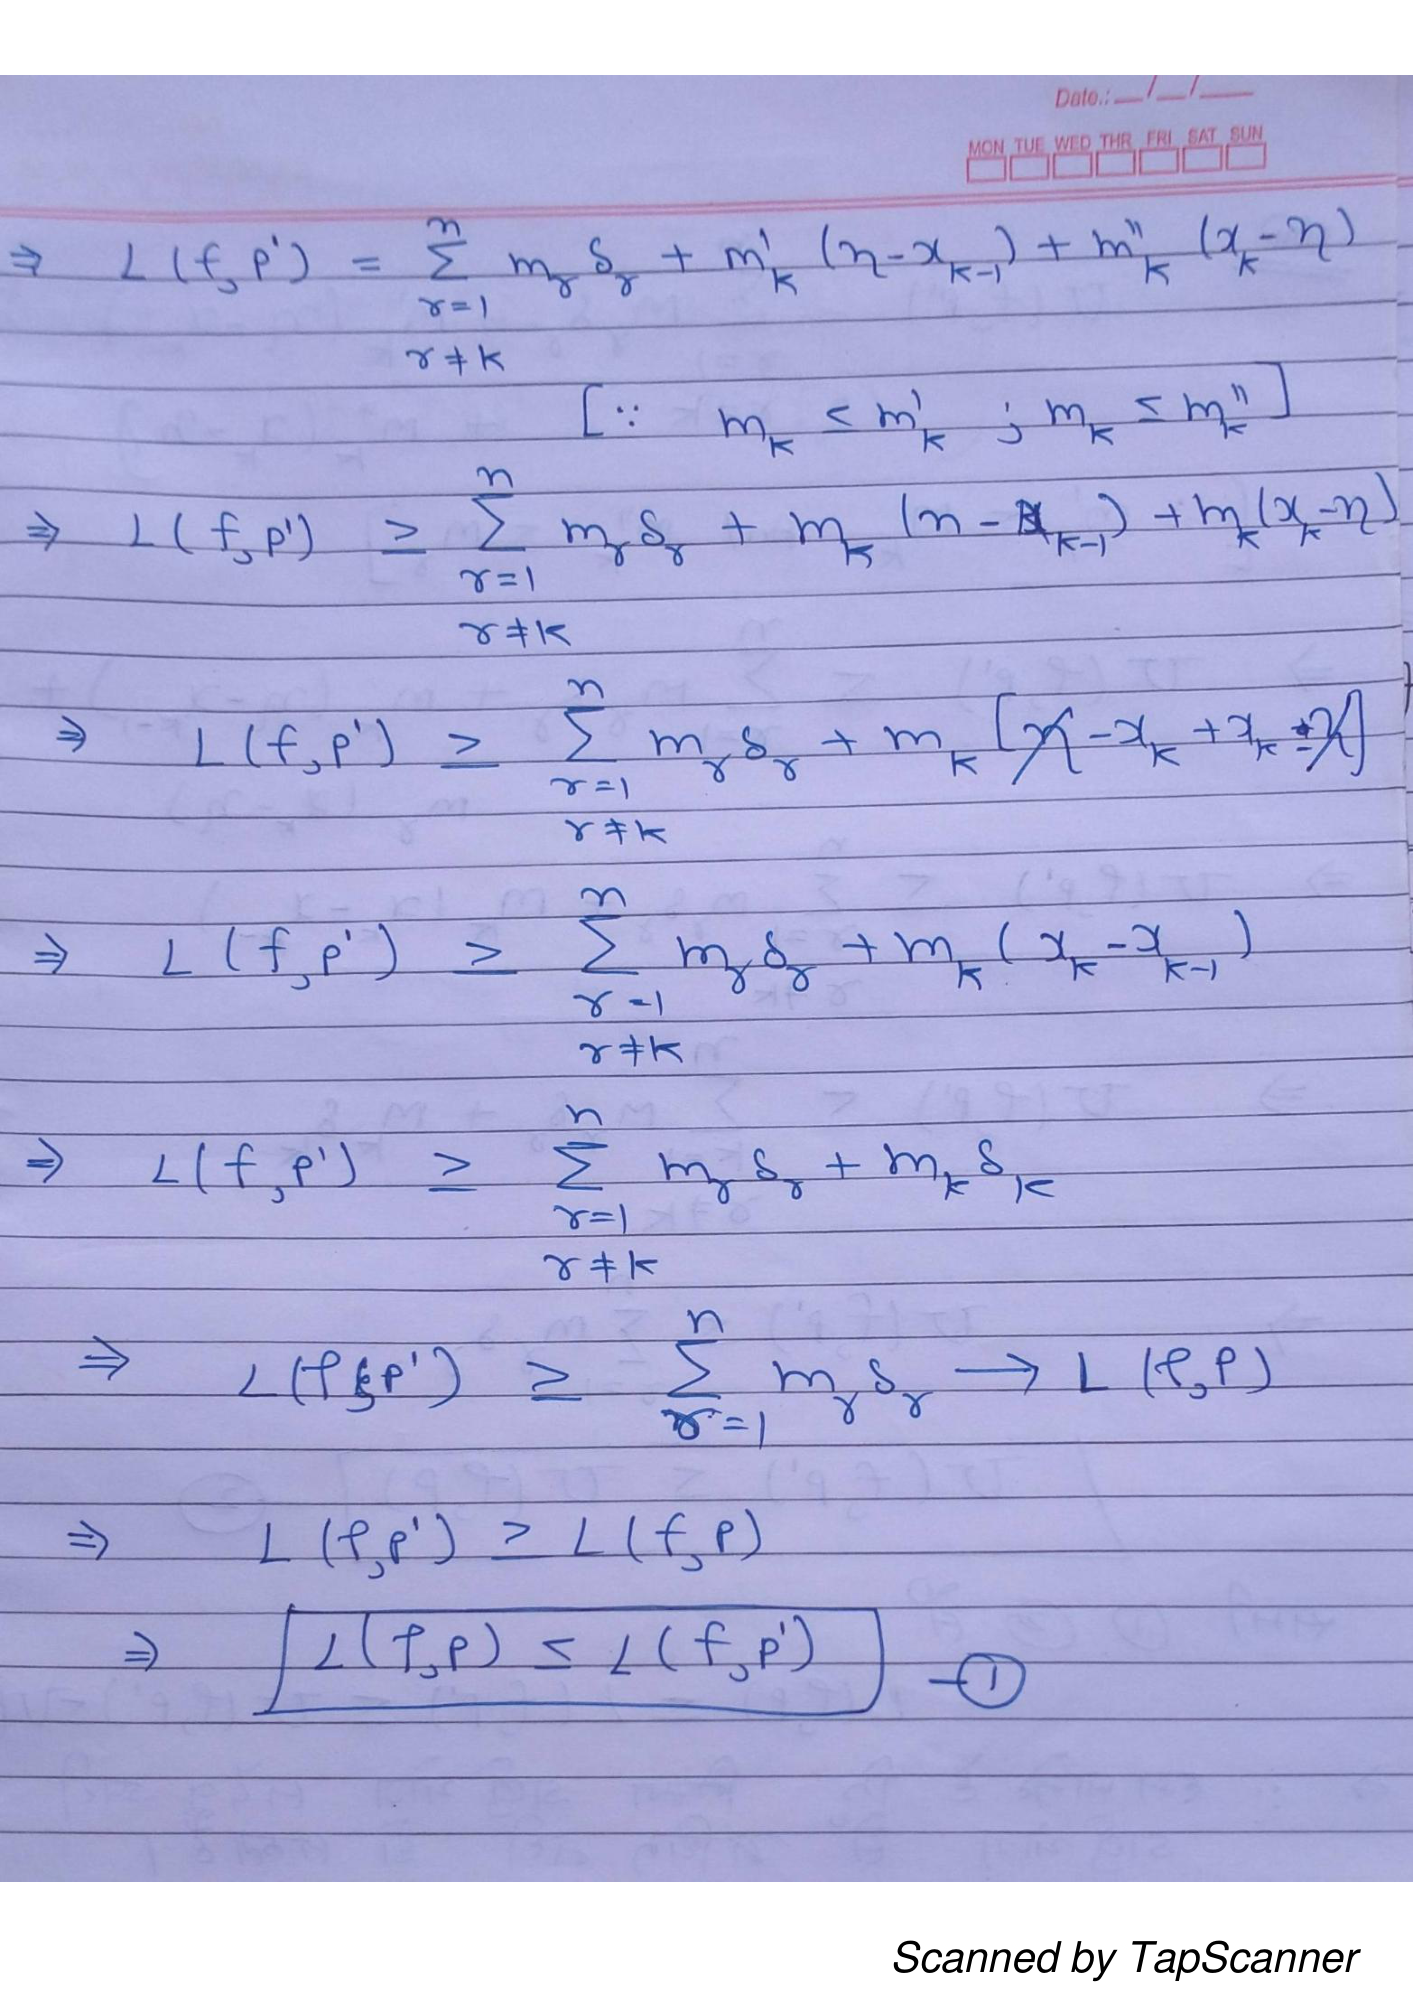 Date.: __/__/__
MON TUE WED THR FRI SAT SUN
⇒ L(f,p') = Σ_{r=1, r≠k}^{n} m_r δ_r + m'_k (η-x_{k-1}) + m''_k (x_k-η)
[∵ m_k ≤ m'_k ; m_k ≤ m''_k]
⇒ L(f,p') ≥ Σ_{r=1, r≠k}^{n} m_r δ_r + m_k (η-x_{k-1}) + m_k(x_k-η)
⇒ L(f,p') ≥ Σ_{r=1, r≠k}^{n} m_r δ_r + m_k [η-x_k+x_k-η]
⇒ L(f,p') ≥ Σ_{r=1, r≠k}^{n} m_r δ_r + m_k (x_k-x_{k-1})
⇒ L(f,p') ≥ Σ_{r=1, r≠k}^{n} m_r δ_r + m_k δ_k
⇒ L(f,p') ≥ Σ_{r=1}^{n} m_r δ_r → L(f,P)
⇒ L(f,p') ≥ L(f,p)
⇒ L(f,p) ≤ L(f,p') -①
Scanned by TapScanner